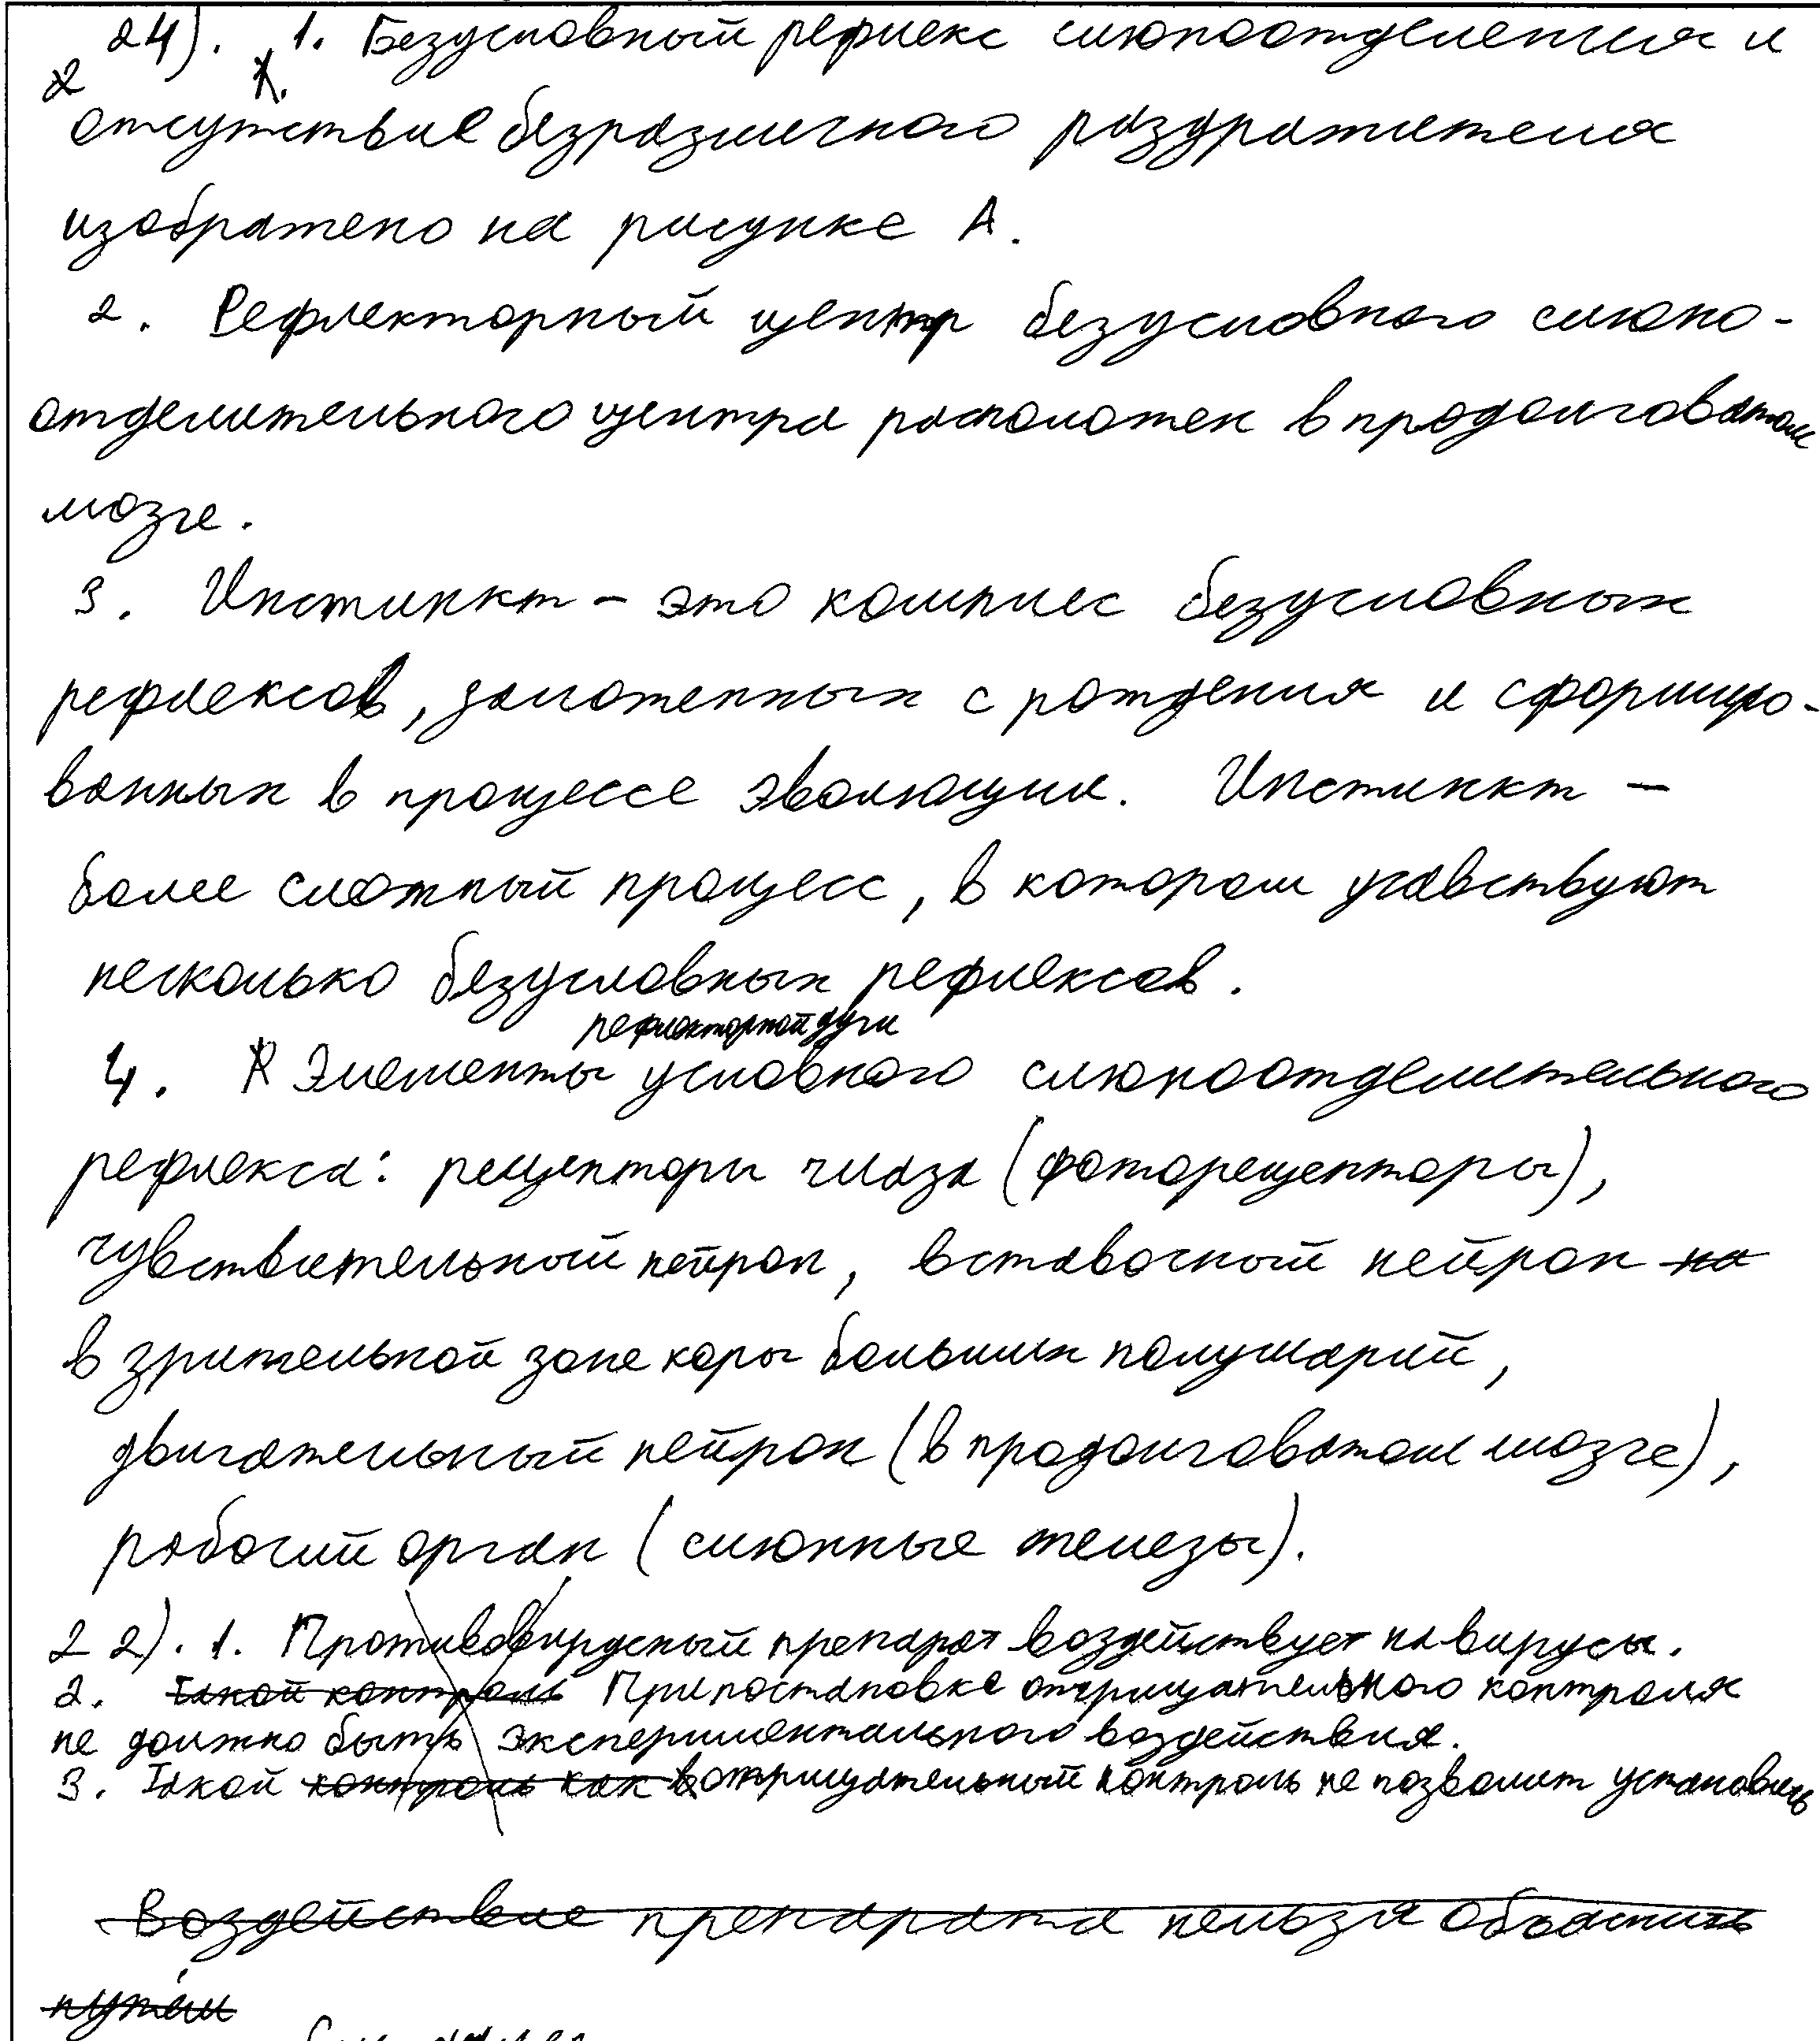 24). 1. Безусловный рефлекс слюноотделения и
отсутствие безразличного раздражителя
изображено на рисунке А.
2. Рефлекторный центр безусловного слюно-
отделительного центра расположен в продолговатом
мозге.
3. Инстинкт - это комплес безусловных
рефлексов, заложенных с рождения и сформиро-
ванных в процессе эволюции. Инстинкт -
более сложный процесс, в котором учавствуют
несколько безусловных рефлексов.
рефлекторной дуги
4. Элементы условного слюноотделительного
рефлекса: рецепторы глаза (фоторецепторы),
чувствительный нейрон, вставочный нейрон на
в зрительной зоне коры больших полушарий,
двигательный нейрон (в продолговатом мозге),
рабочий орган (слюнные железы).
22). 1. Противовирусный препарат воздействует на вирусы.
2. Такой контроль При постановке отрицательного контроля
не должно быть экспериментального воздействия.
3. Такой контроль как в отрицательный контроль не позволит установить
Воздействие препарата нельзя объяснить
путём